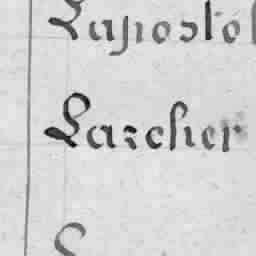 Lapostol
Larcher